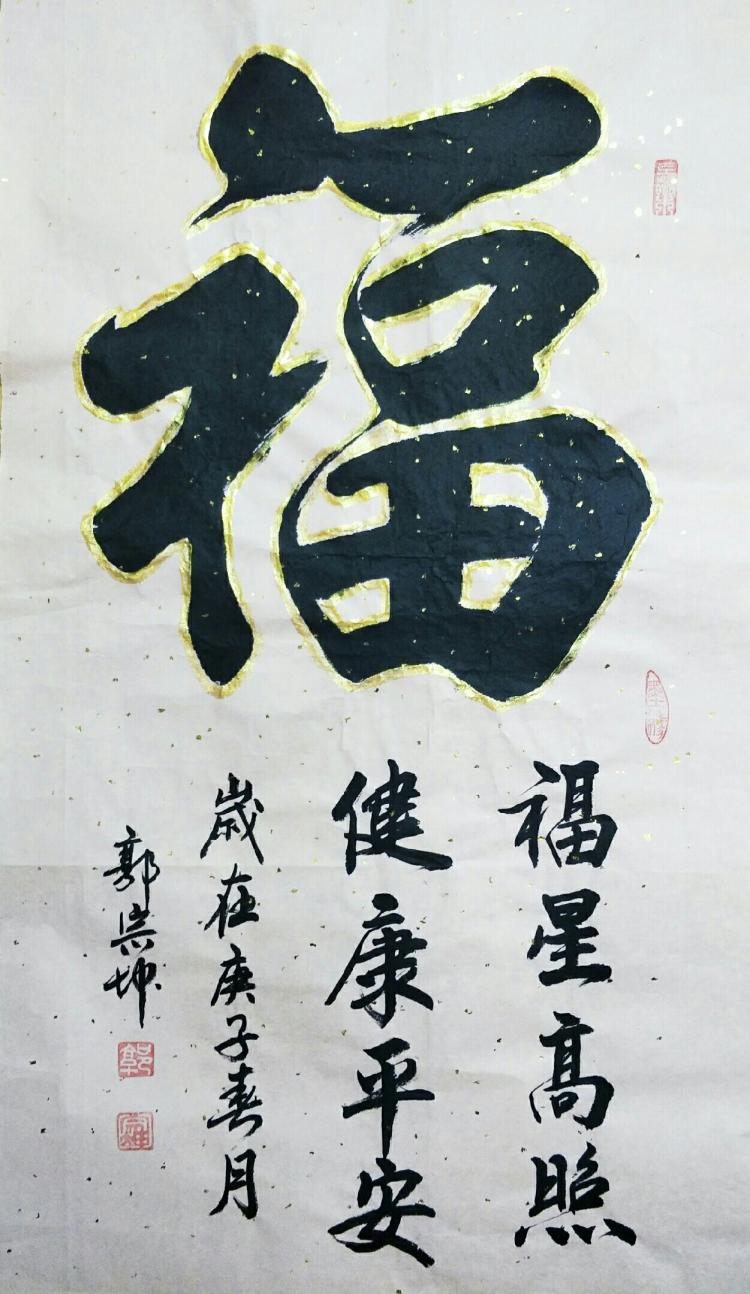 福
福星高照
健康平安
歲在庚子春月
郭崇坤
郭